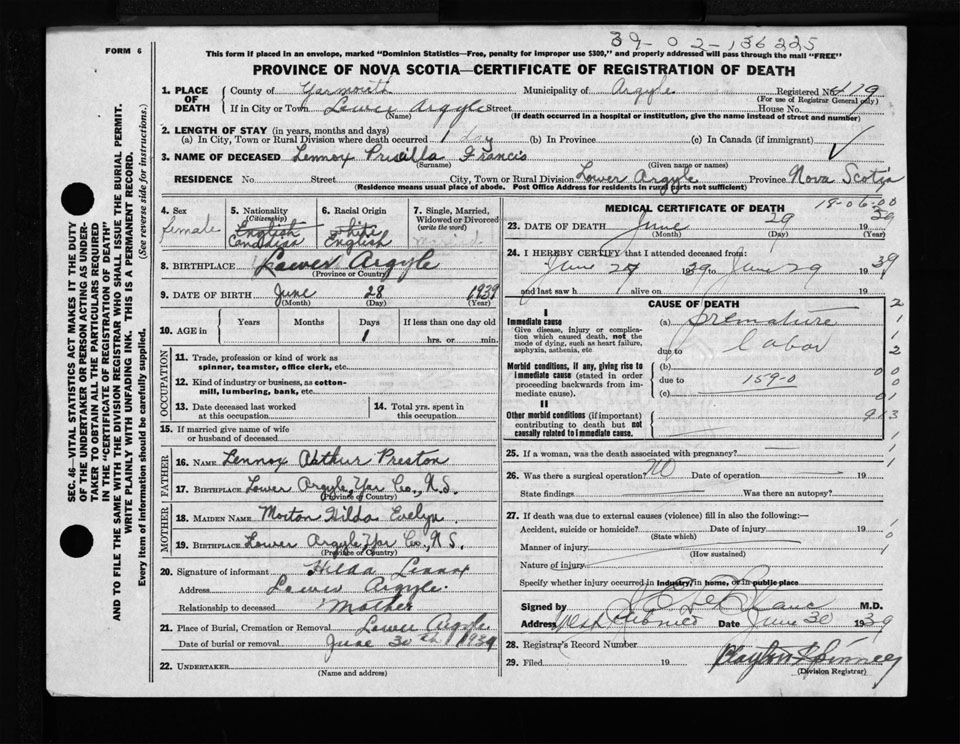 39-02-136225
FORM 6
This form if placed in an envelope, marked "Dominion Statistics—Free, penalty for improper use $300," and properly addressed will pass through the mail "FREE"
PROVINCE OF NOVA SCOTIA—CERTIFICATE OF REGISTRATION OF DEATH
SEC. 46—VITAL STATISTICS ACT MAKES IT THE DUTY
OF THE UNDERTAKER OR PERSON ACTING AS UNDER-
TAKER TO OBTAIN ALL THE PARTICULARS REQUIRED
IN THE "CERTIFICATE OF REGISTRATION OF DEATH"
AND TO FILE THE SAME WITH THE DIVISION REGISTRAR WHO SHALL ISSUE THE BURIAL PERMIT.
WRITE PLAINLY WITH UNFADING INK. THIS IS A PERMANENT RECORD.
Every item of information should be carefully supplied. (See reverse side for instructions.)
1. PLACE OF DEATH County of Yarmouth Municipality of Argyle Registered No. 419
(For use of Registrar General only)
If in City or Town Lower Argyle Street House No.
(Name) (If death occurred in a hospital or institution, give the name instead of street and number)
2. LENGTH OF STAY (in years, months and days)
(a) In City, Town or Rural Division where death occurred 1 day (b) In Province (c) In Canada (if immigrant)
3. NAME OF DECEASED Lennox Pricilla Francis
(Surname) (Given name or names)
RESIDENCE No. Street City, Town or Rural Division Lower Argyle Province Nova Scotia
(Residence means usual place of abode. Post Office Address for residents in rural parts not sufficient)
4. Sex female
5. Nationality (Citizenship) English Canadian
6. Racial Origin white English
7. Single, Married, Widowed or Divorced (write the word)
8. BIRTHPLACE Lower Argyle
(Province or Country)
9. DATE OF BIRTH June 28 1939
(Month) (Day) (Year)
10. AGE in Years Months Days 1 If less than one day old hrs. or min.
OCCUPATION
11. Trade, profession or kind of work as spinner, teamster, office clerk, etc.
12. Kind of industry or business, as cotton-mill, lumbering, bank, etc.
13. Date deceased last worked at this occupation
14. Total yrs. spent in this occupation
15. If married give name of wife or husband of deceased
FATHER
16. NAME Lennox Arthur Preston
17. BIRTHPLACE Lower Argyle, Yar Co., N.S.
(Province or Country)
MOTHER
18. MAIDEN NAME Morton Hilda Evelyn.
19. BIRTHPLACE Lower Argyle, Yar Co., N.S.
(Province or Country)
20. Signature of informant Hilda Lennox
Address Lower Argyle.
Relationship to deceased Mother
21. Place of Burial, Cremation or Removal Lower Argyle
Date of burial or removal June 30th 1939
22. UNDERTAKER
(Name and address)
18-06-00
MEDICAL CERTIFICATE OF DEATH
23. DATE OF DEATH June 29 1939
(Month) (Day) (Year)
24. I HEREBY CERTIFY that I attended deceased from:
June 27 1939 to June 29 1939
and last saw h alive on 19
CAUSE OF DEATH
I
Immediate cause (a) premature labor
Give disease, injury or complication which caused death, not the mode of dying, such as heart failure, asphyxia, asthenia, etc
due to
Morbid conditions, if any, giving rise to immediate cause (stated in order proceeding backwards from immediate cause). (b)
due to 159-0
(c)
II
Other morbid conditions (if important) contributing to death but not causally related to immediate cause.
25. If a woman, was the death associated with pregnancy?
26. Was there a surgical operation? NO Date of operation 19
State findings Was there an autopsy?
27. If death was due to external causes (violence) fill in also the following:—
Accident, suicide or homicide? Date of injury 19
(State which)
Manner of injury
(How sustained)
Nature of injury
Specify whether injury occurred in industry, in home, or in public place
Signed by LeBlanc M.D.
Address West Pubnico Date June 30 1939
28. Registrar's Record Number
29. Filed 19
(Division Registrar)